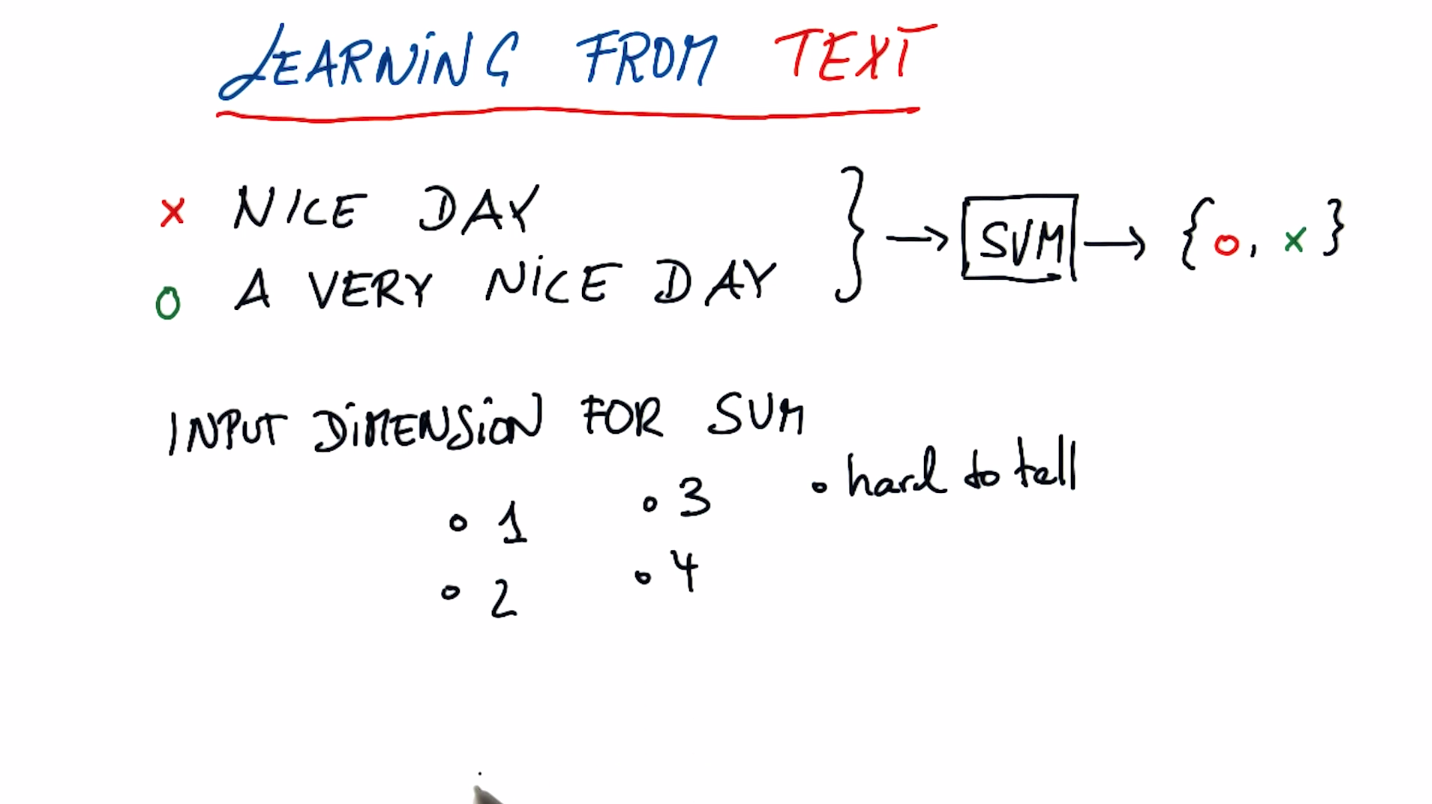 LEARNING FROM TEXT
x NICE DAY
o A VERY NICE DAY
} → SVM → {o, x}
INPUT DIMENSION FOR SVM
o 1
o 2
o 3
o 4
o hard to tell